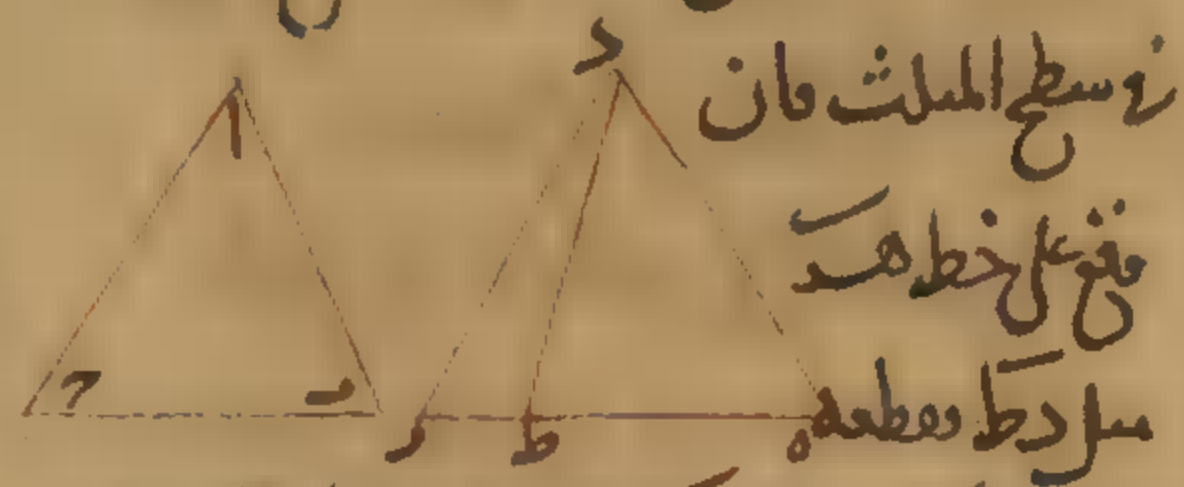 في سطح المثلث فان
وقع على خط هد
مثل دط وقطعه
ا
ب
ج
د
ه
ط
ر